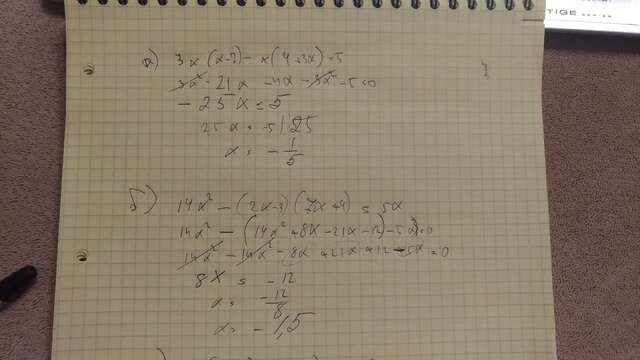 TIGE
а) 3x(x-7) - x(4+3x)=5
3x² - 21x - 4x - 3x² - 5=0
- 25x = 5
25x = -5/25
x = - 1/5
б) 14x² - (2x-3)(7x+4) = 5x
14x² - (14x² + 8x - 21x - 12) - 5x = 0
14x² - 14x² - 8x + 21x + 12 - 5x = 0
8x = -12
x = -12/8
x = -1,5